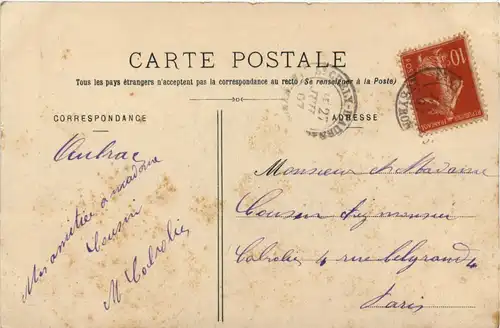 CARTE POSTALE
Tous les pays étrangers n'acceptent pas la correspondance au recto (Se renseigner à la Poste)
CORRESPONDANCE
ADRESSE
Aubrac
Mes amitiés à madame
Cousin
M Cabrolié
Monsieur et Madame
Cousin chez monsieur
Cabrolié 4 rue 4
Paris
10